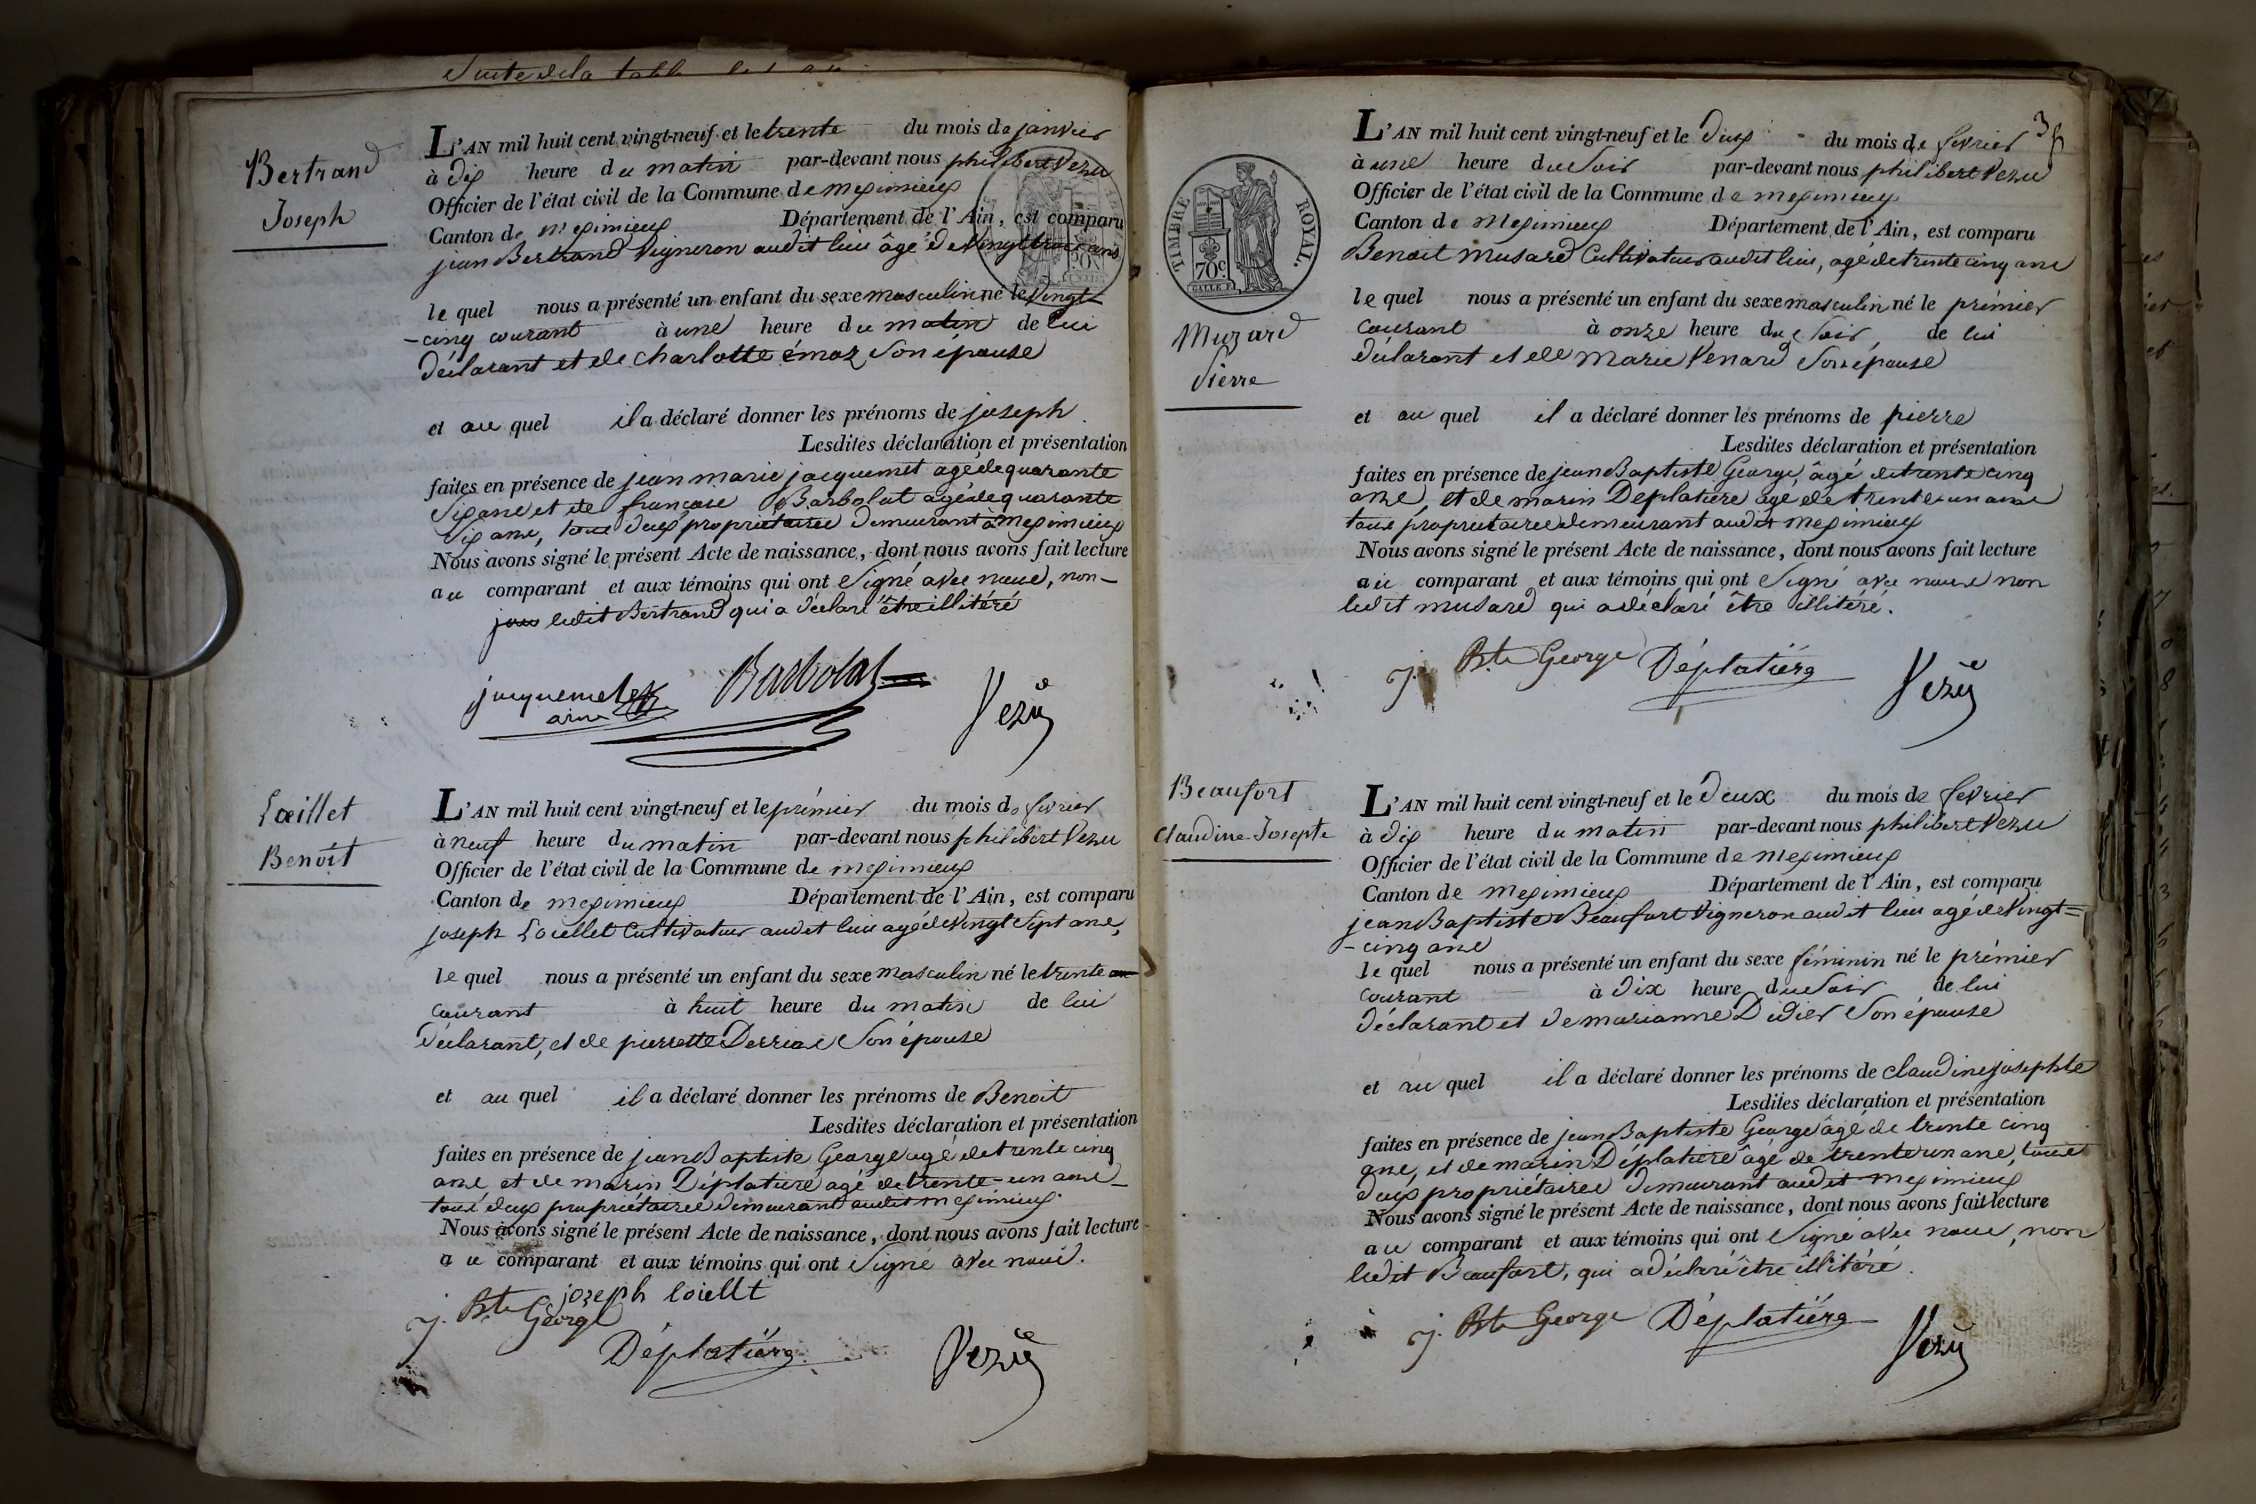 Suite de la table
Bertrand
Joseph
L'AN mil huit cent vingt-neuf et le trente du mois de janvier
à dix heure du matin par-devant nous philibert Vezu
Officier de l'état civil de la Commune de meximieux
Canton de meximieux Département de l'Ain, est comparu
jean Bertrand Vigneron audit lieu âgé de Vingt trois ans
le quel nous a présenté un enfant du sexe masculin né le Vingt
-cinq courant à une heure du matin de lui
déclarant et de charlotte émoz son épouse
et au quel il a déclaré donner les prénoms de joseph
Lesdites déclaration et présentation
faites en présence de jean marie jacquemet agé de quarante
six ans et de françois Barbolat agé de quarante
six ans, tous deux propriétaires demeurant à meximieux
Nous avons signé le présent Acte de naissance, dont nous avons fait lecture
au comparant et aux témoins qui ont signé avec nous, non-
ledit Bertrand qui a déclaré être illitéré
jacquemet Barbolat Vezu
ainé
Lœillet
Benoît
L'AN mil huit cent vingt-neuf et le prémier du mois de fevrier
à neuf heure du matin par-devant nous philibert Vezu
Officier de l'état civil de la Commune de meximieux
Canton de meximieux Département de l'Ain, est comparu
joseph Loiellet Cultivateur audit lieu agé de Vingt sept ans,
le quel nous a présenté un enfant du sexe masculin né le trente
courant à huit heure du matin de lui
déclarant, et de pierrette Derrias son épouse
et au quel il a déclaré donner les prénoms de Benoit
Lesdites déclaration et présentation
faites en présence de jean Baptiste George agé de trente cinq
ans et de marin Déplatiere agé de trente-un ans
tous deux propriétaires demeurant audit meximieux.
Nous avons signé le présent Acte de naissance, dont nous avons fait lecture
au comparant et aux témoins qui ont signé avec nous.
jozeph loiellt
J. Bte George
Déplatiére Vezu
38
TIMBRE ROYAL.
70c
Muzard
Pierre
L'AN mil huit cent vingt-neuf et le deux du mois de fevrier
à une heure du soir par-devant nous philibert Vezu
Officier de l'état civil de la Commune de meximieux
Canton de Meximieux Département de l'Ain, est comparu
Benoit musard Cultivateur audit lieu, agé de trente cinq ans
le quel nous a présenté un enfant du sexe masculin né le prémier
courant à onze heure du soir, de lui
déclarant et de marie Venard son épouse
et au quel il a déclaré donner les prénoms de pierre
Lesdites déclaration et présentation
faites en présence de jean Baptiste George, âgé de trente cinq
ans, et de marin Déplatiere agé de trente un ans
tous propriétaires demeurant audit meximieux
Nous avons signé le présent Acte de naissance, dont nous avons fait lecture
au comparant et aux témoins qui ont signé avec nous non
ledit musard qui a déclaré être illitéré.
J. Bte George Déplatiére Vezu
Beaufort
Claudine-Josepte
L'AN mil huit cent vingt-neuf et le deux du mois de fevrier
à dix heure du matin par-devant nous philibert Vezu
Officier de l'état civil de la Commune de meximieux
Canton de meximieux Département de l'Ain, est comparu
jean Baptiste Beaufort Vigneron audit lieu agé de Vingt-
-cinq ans
le quel nous a présenté un enfant du sexe féminin né le prémier
courant à dix heure du soir de lui
déclarant et de marianne Didier son épouse
et au quel il a déclaré donner les prénoms de claudine josephte
Lesdites déclaration et présentation
faites en présence de jean Baptiste George âgé de trente cinq
ans, et de marin Déplatiere âgé de trente un ans, tous
deux propriétaires demeurant audit meximieux
Nous avons signé le présent Acte de naissance, dont nous avons fait lecture
au comparant et aux témoins qui ont signé avec nous, non
ledit Beaufort, qui a déclaré être illitéré.
J. Bte George Déplatiére Vezu